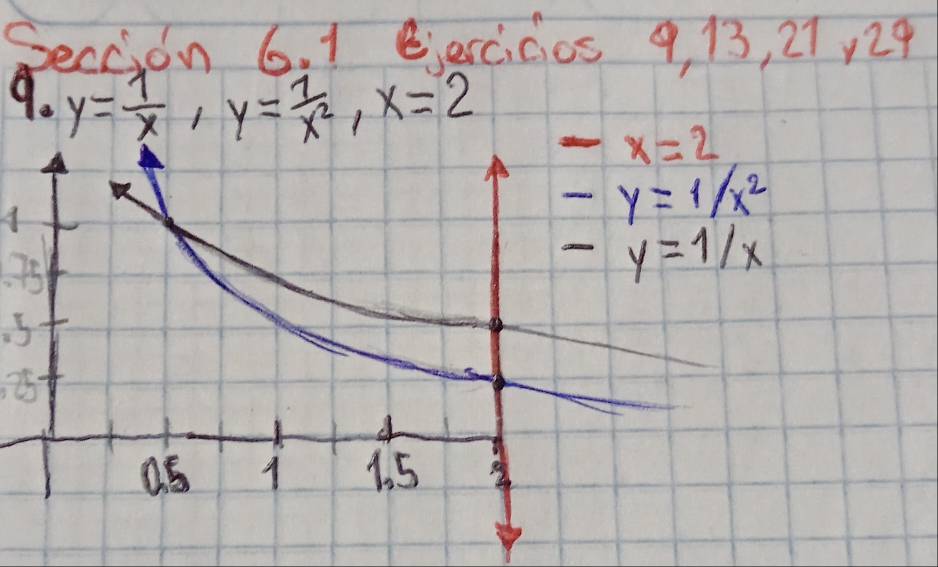 Sección 6.1 Ejercicios 9, 13, 21 y 29
9. y = 1/x , y = 1/x² , x = 2
— x = 2
— y = 1/x²
— y = 1/x
1
.75
.5
.25
0.5 1 1.5 2